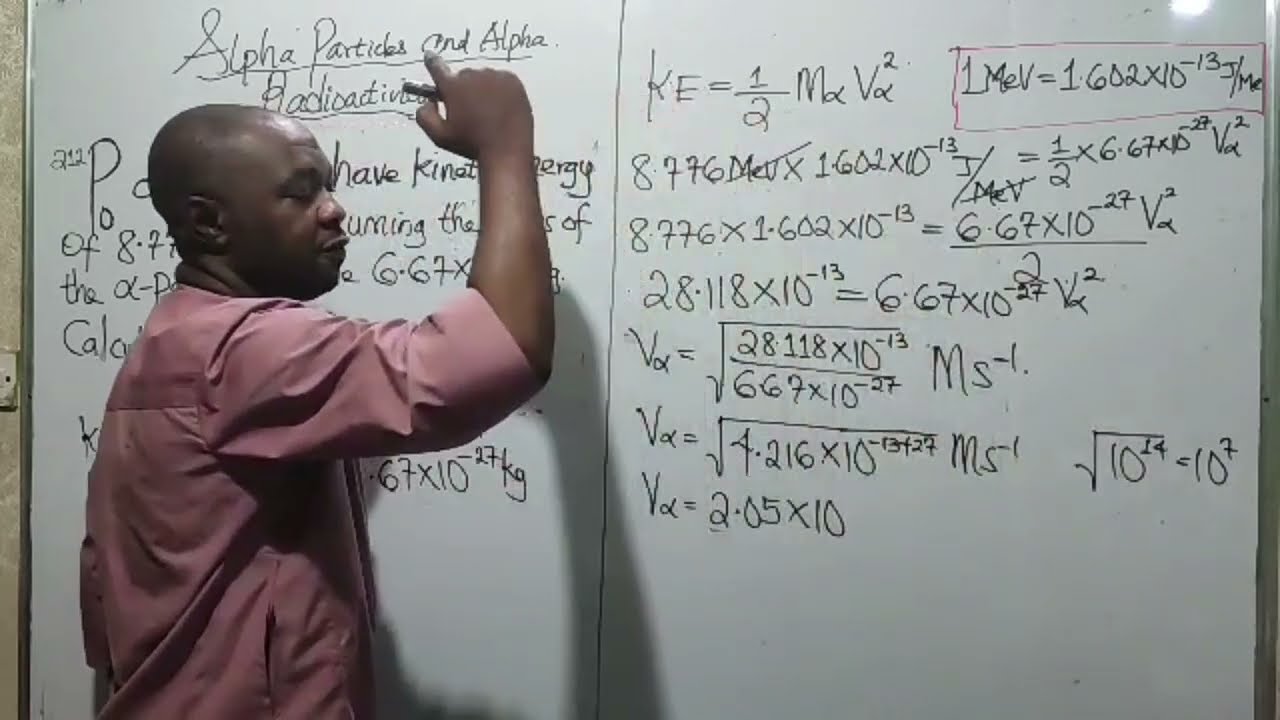 Alpha Particles and Alpha
Radioactiv
²¹²Po have kinet ergy
Of 8.77 uming the s of
the α-p e 6.67x
Calc
k
.67x10⁻²⁷kg
K.E = 1/2 Mα Vα²
1MeV = 1.602x10⁻¹³J/Me
8.776 MeV x 1.602x10⁻¹³ J/MeV = 1/2 x 6.67x10⁻²⁷ Vα²
8.776 x 1.602x10⁻¹³ = 6.67x10⁻²⁷/2 Vα²
28.118x10⁻¹³ = 6.67x10⁻²⁷ Vα²
Vα = √(28.118x10⁻¹³/6.67x10⁻²⁷) Ms⁻¹.
Vα = √(4.216x10⁻¹³⁺²⁷) Ms⁻¹
√10¹⁴ = 10⁷
Vα = 2.05x10